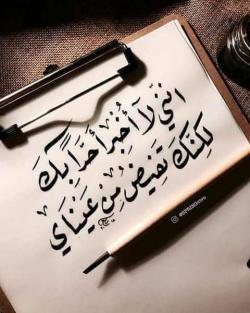 إنني لَا أُخبِر أحَدًا بِكَ
لكِنَّكَ تَفِيضُ مِنْ عَينَاي